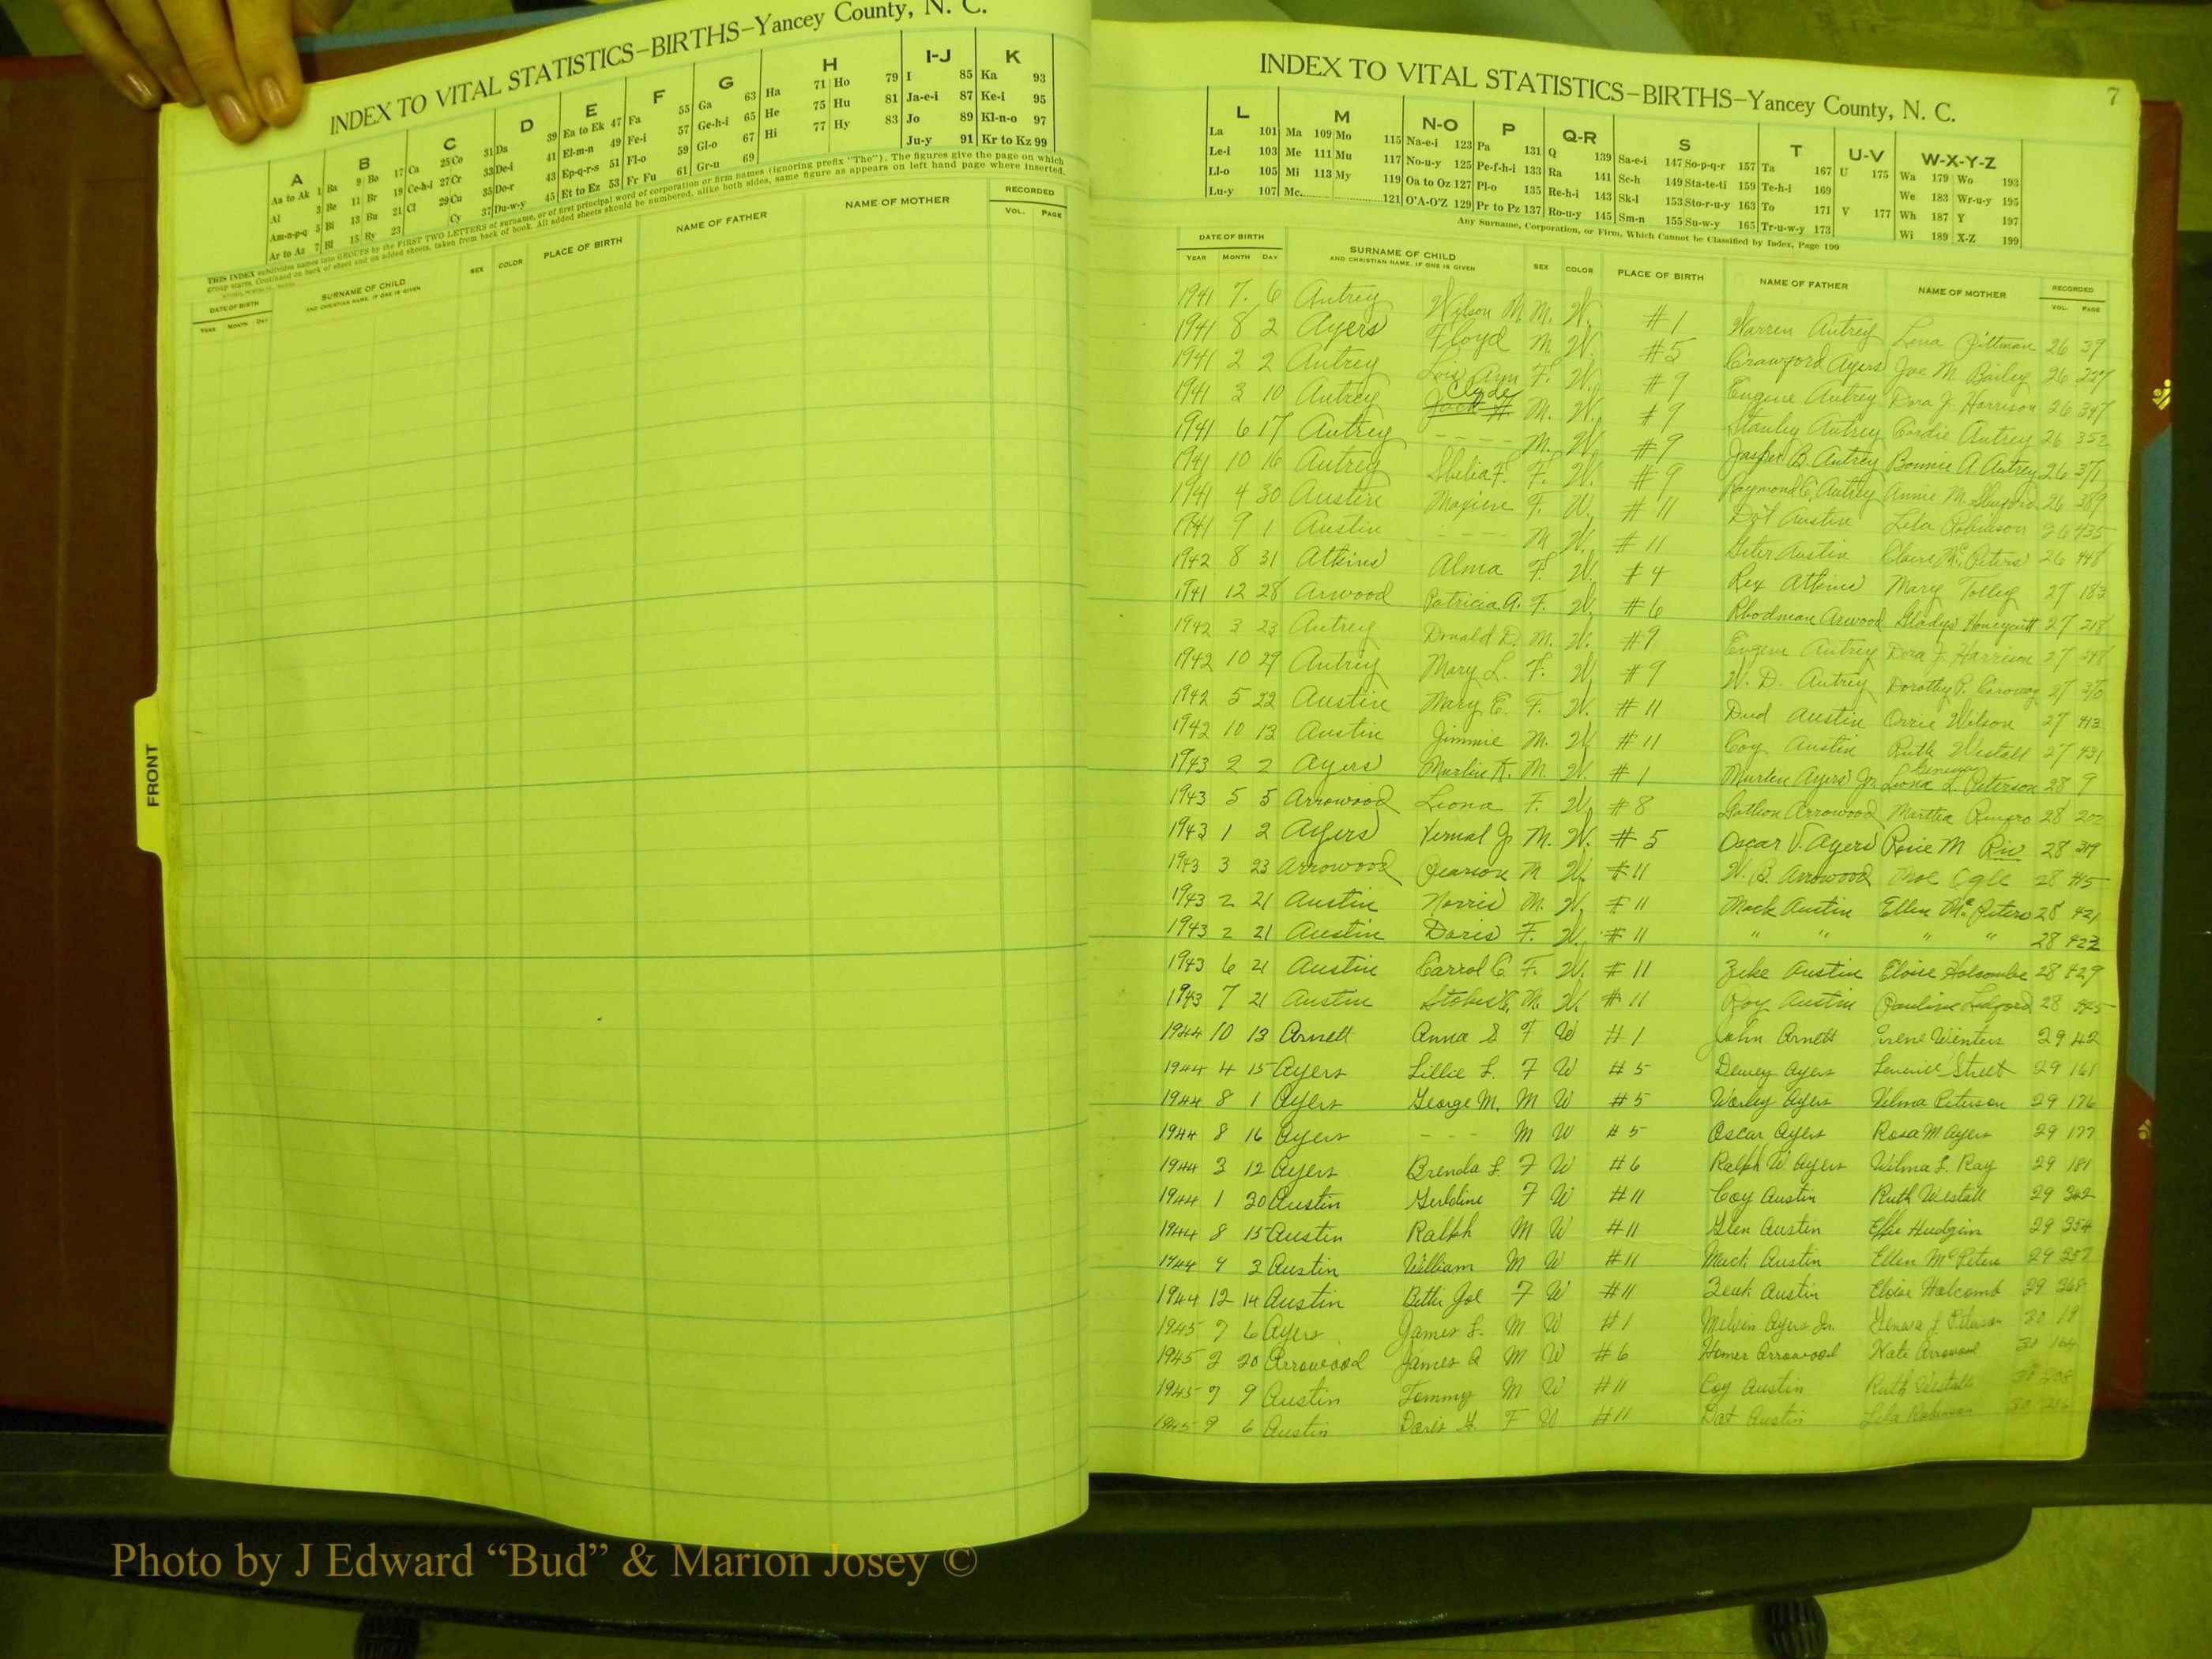 INDEX TO VITAL STATISTICS–BIRTHS–Yancey County, N. C.
A B C D E F G H I-J K
Aa to Ak 1 Ba 9 Bo 17 Ca 25 Co 31 Da 39 Ea to Ek 47 Fa 55 Ga 63 Ha 71 Ho 79 I 85 Ka 93
Al 3 Be 11 Br 19 Ce-h-i 27 Cr 33 De-i 41 El-m-n 49 Fe-i 57 Ge-h-i 65 He 75 Hu 81 Ja-e-i 87 Ke-i 95
Am-n-p-q 5 Bi 13 Bu 21 Cl 29 Cu 35 Do-r 43 Ep-q-r-s 51 Fl-o 59 Gl-o 67 Hi 77 Hy 83 Jo 89 Kl-n-o 97
Ar to Az 7 Bl 15 By 23 Cy 37 Du-w-y 45 Et to Ez 53 Fr Fu 61 Gr-u 69 Ju-y 91 Kr to Kz 99
THIS INDEX subdivides names into GROUPS by the FIRST TWO LETTERS of surname, or of first principal word of corporation or firm names (ignoring prefix "The"). The figures give the page on which
group starts. Continued on back of sheet and on added sheets, taken from back of book. All added sheets should be numbered, alike both sides, same figure as appears on left hand page where inserted.
DATE OF BIRTH SURNAME OF CHILD SEX COLOR PLACE OF BIRTH NAME OF FATHER NAME OF MOTHER RECORDED
YEAR MONTH DAY AND CHRISTIAN NAME, IF ONE IS GIVEN VOL. PAGE
FRONT
7
INDEX TO VITAL STATISTICS–BIRTHS–Yancey County, N. C.
L M N-O P Q-R S T U-V W-X-Y-Z
La 101 Ma 109 Mo 115 Na-e-i 123 Pa 131 Q 139 Sa-e-i 147 So-p-q-r 157 Ta 167 U 175 Wa 179 Wo 193
Le-i 103 Me 111 Mu 117 No-u-y 125 Pe-f-h-i 133 Ra 141 Sc-h 149 Sta-te-ti 159 Te-h-i 169 We 183 Wr-u-y 195
Ll-o 105 Mi 113 My 119 Oa to Oz 127 Pl-o 135 Re-h-i 143 Sk-l 153 Sto-r-u-y 163 To 171 V 177 Wh 187 Y 197
Lu-y 107 Mc 121 O'A-O'Z 129 Pr to Pz 137 Ro-u-y 145 Sm-n 155 Su-w-y 165 Tr-u-w-y 173 Wi 189 X-Z 199
Any Surname, Corporation, or Firm, Which Cannot be Classified by Index, Page 199
DATE OF BIRTH SURNAME OF CHILD SEX COLOR PLACE OF BIRTH NAME OF FATHER NAME OF MOTHER RECORDED
YEAR MONTH DAY AND CHRISTIAN NAME, IF ONE IS GIVEN VOL. PAGE
1941 7 6 Autrey Wilson M. M. W. #1 Warren Autrey Lena Pittman 26 39
1941 8 2 Ayers Floyd M. W. #5 Crawford Ayers Joe M. Bailey 26 227
1941 2 2 Autrey Lois Ann F. W. #9 Eugene Autrey Dora J. Harrison 26 347
1941 3 10 Autrey Clyde M. W. #9 Stanley Autrey Cordie Autrey 26 352
1941 6 17 Autrey - - - - M. W. #9 Jasper B. Autrey Bonnie A. Autrey 26 371
1941 10 16 Autrey Shelia F. F. W. #9 Raymond C. Autrey Annie M. 26 389
1941 4 30 Austin Maxine F. W. #11 Austin Lila Robinson 26 435
1941 9 1 Austin - - - - M W. #11 Austin Claire McPeters 26 448
1942 8 31 Atkins Alma F. W. #4 Rex Atkins Mary Tolley 27 183
1941 12 28 Arwood Patricia A. F. W. #6 Rhodman Arwood Gladys Honeycutt 27 218
1942 3 23 Autrey Donald D. M. W. #9 Eugene Autrey Dora J. Harrison 27 348
1942 10 29 Autrey Mary L. F. W. #9 W. D. Autrey Dorothy P. 27 370
1942 5 22 Austin Mary E. F. W. #11 Dud Austin Orrie Wilson 27 413
1942 10 13 Austin Jimmie M. W. #11 Coy Austin Ruth Westall 27 431
1943 2 2 Ayers Murlin K. M. W. #1 Murlin Ayers Jr. Geneva L. Peterson 28 9
1943 5 5 Arrowood Leona F. W. #8 Arrowood Martha Renfro 28 202
1943 1 2 Ayers Vernal Jr M. W. #5 Oscar V. Ayers Rosie M 28 319
1943 3 23 Arrowood Pearson M W. #11 W. B. Arrowood Mae Ogle 28 415
1943 2 21 Austin Norris M. W. #11 Mack Austin Ellen McPeters 28 421
1943 2 21 Austin Doris F. W. #11 " " " " 28 422
1943 6 21 Austin Carrol C. F. W. #11 Zeke Austin Eloise Holcombe 28 429
1943 7 21 Austin M. W. #11 Roy Austin Pauline Ledford 28 445
1944 10 13 Arnett Anna S F W #1 John Arnett Irene Winters 29 42
1944 4 15 Ayers Lillie L. F W #5 Dewey Ayers Street 29 161
1944 8 1 Ayers George M. M W #5 Worley Ayers Velma Peterson 29 176
1944 8 16 Ayers - - - M W #5 Oscar Ayers Rosa M Ayers 29 177
1944 3 12 Ayers Brenda L. F W #6 Ralph W. Ayers Wilma L. Ray 29 181
1944 1 30 Austin Geraldine F W #11 Coy Austin Ruth Westall 29 342
1944 8 15 Austin Ralph M W #11 Glen Austin Effie Hudgins 29 354
1944 9 3 Austin William M W #11 Mack Austin Ellen McPeters 29 357
1944 12 14 Austin Bettie Joe F W #11 Zeak Austin Eloise Holcomb 29 368
1945 7 6 Ayers James L. M W #1 Melvin Ayers Jr. Geneva L. Peterson 30 19
1945 2 20 Arrowood James Q M W #6 Homer Arrowood Kate Arrowood 30 164
1945 7 9 Austin Tommy M W #11 Coy Austin Ruth Westall 30
1945 9 6 Austin Doris G. F W #11 Dot Austin Lila Robinson 30
Photo by J Edward “Bud” & Marion Josey ©